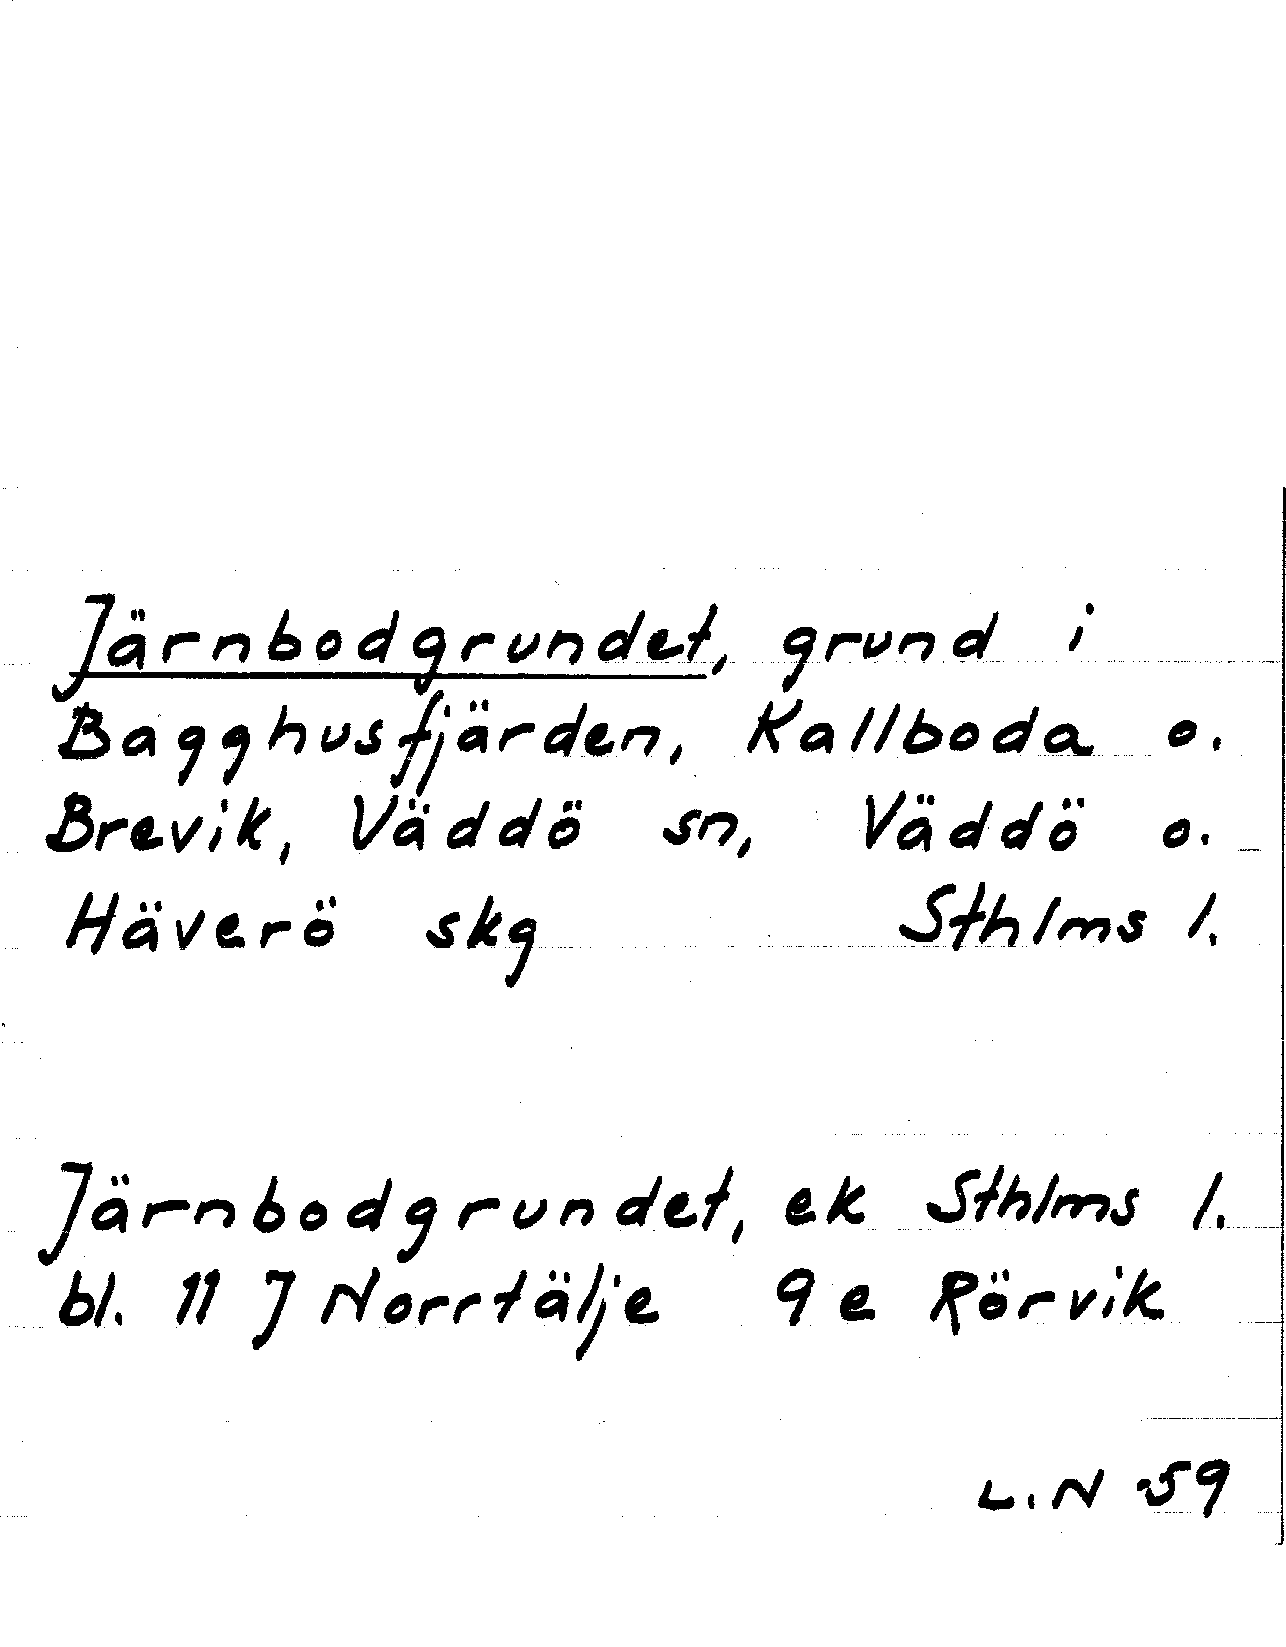 Järnbodgrundet, grund i
Bagghusfjärden, Kallboda o.
Brevik, Väddö sn, Väddö o.
Häverö skg Sthlms l.
Järnbodgrundet, ek Sthlms l.
bl. 11 J Norrtälje 9 e Rörvik
L.N -59